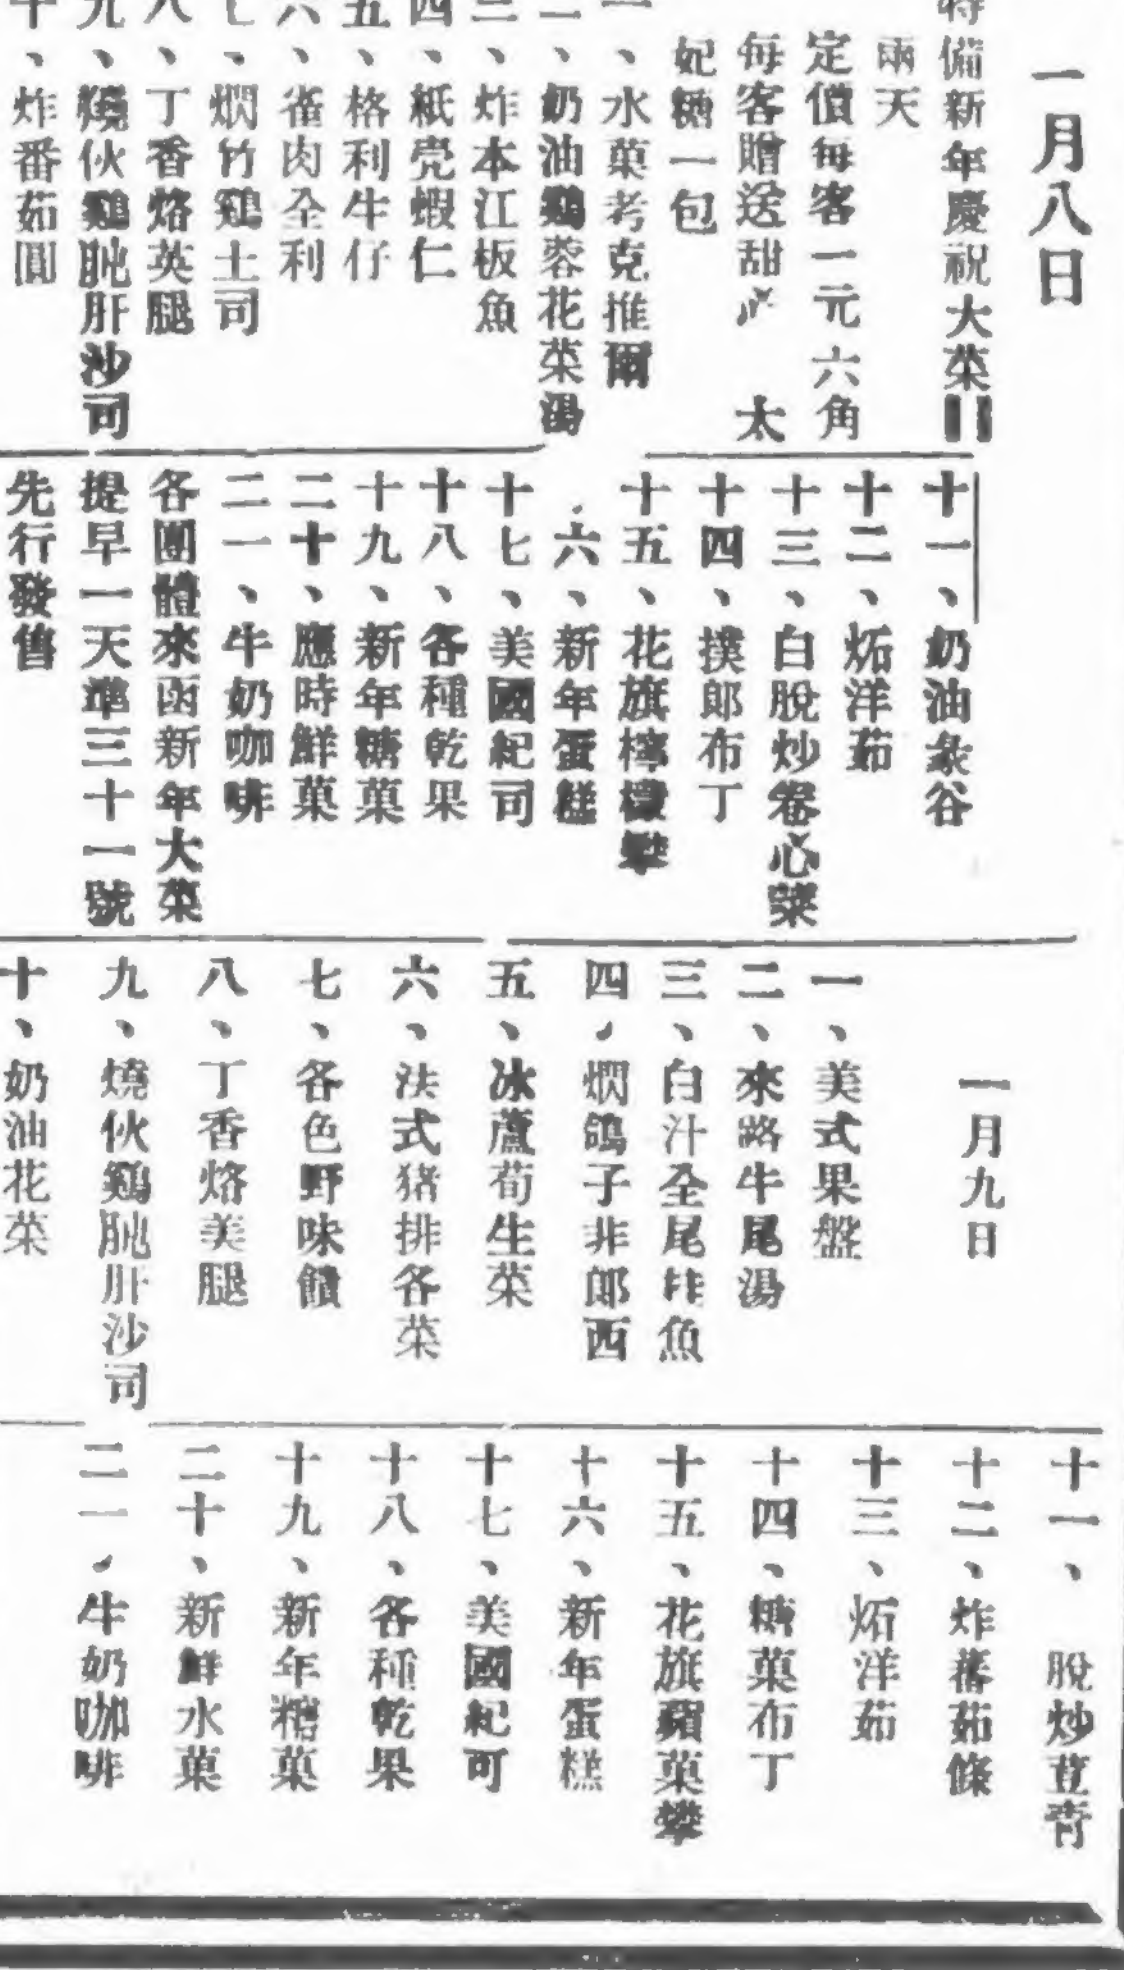 一月八日
特備新年慶祝大菜
兩天
定價每客一元六角
每客贈送甜心 太
妃糖一包
一、水菓考克推爾
二、奶油鷄蓉花菜湯
三、炸本江板魚
四、紙壳蝦仁
五、格利牛仔
六、雀肉全利
七、燜竹鷄土司
八、丁香烙英腿
九、燒伙鷄肫肝沙司
十、炸番茹圓
十一、奶油粢谷
十二、炻洋茹
十三、白脫炒卷心菜
十四、撲郎布丁
十五、花旗檸檬攀
六、新年蛋糕
十七、美國紀司
十八、各種乾果
十九、新年糖菓
二十、應時鮮菓
二一、牛奶咖啡
各團體來函新年大菜
提早一天準三十一號
先行發售
一月九日
一、美式果盤
二、來路牛尾湯
三、白汁全尾魚
四、燜鴿子非郎西
五、冰蘆荀生菜
六、法式猪排各菜
七、各色野味饋
八、丁香烙美腿
九、燒伙鷄肫肝沙司
十、奶油花菜
十一、 脫炒荳青
十二、炸蕃茹條
十三、炻洋茹
十四、糖菓布丁
十五、花旗蘋菓攀
十六、新年蛋糕
十七、美國紀可
十八、各種乾果
十九、新年糖菓
二十、新鮮水菓
二一、牛奶咖啡